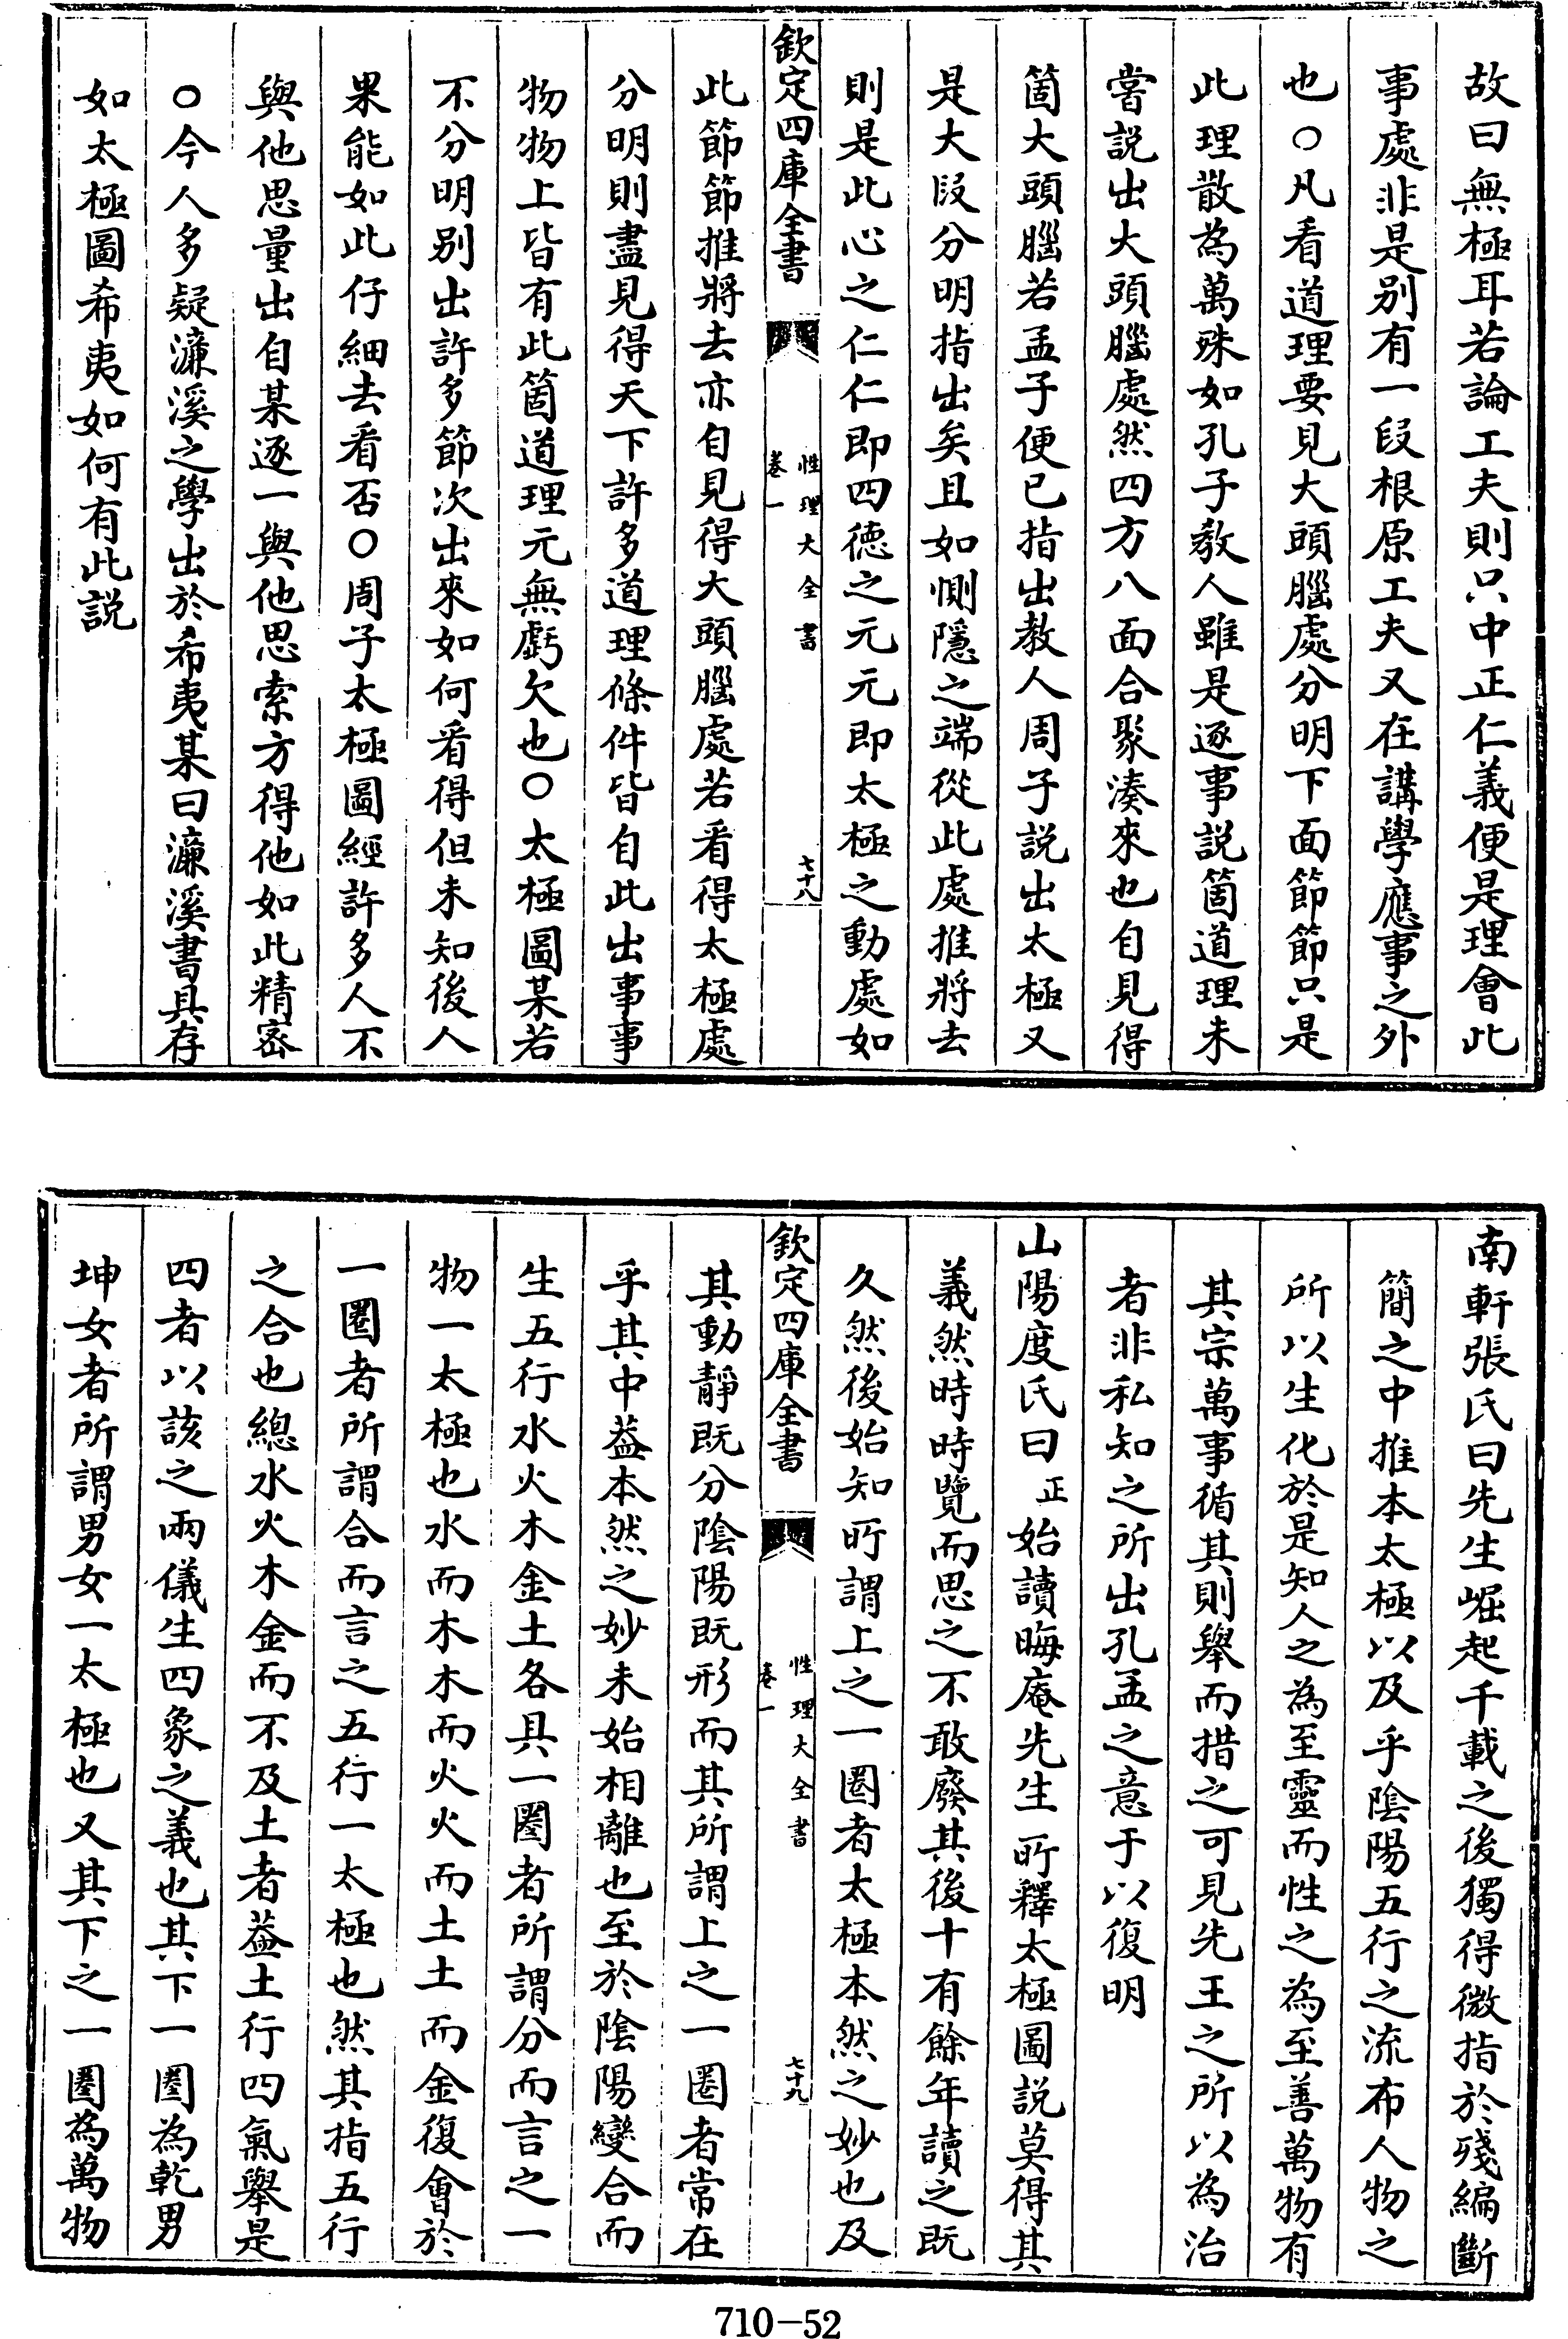 故曰無極耳若論工夫則只中正仁義便是理會此
事處非是别有一段根原工夫又在講學應事之外
也○凡看道理要見大頭腦處分明下面節節只是
此理散為萬殊如孔子教人雖是逐事説箇道理未
嘗説出大頭腦處然四方八面合聚湊來也自見得
箇大頭腦若孟子便已指出教人周子説出太極又
是大段分明指出矣且如惻隱之端從此處推將去
則是此心之仁仁即四德之元元即太極之動處如
欽定四庫全書
性理大全書
卷一
七十八
此節節推將去亦自見得大頭腦處若看得太極處
分明則盡見得天下許多道理條件皆自此出事事
物物上皆有此箇道理元無虧欠也○太極圖某若
不分明别出許多節次出來如何看得但未知後人
果能如此仔細去看否○周子太極圖經許多人不
與他思量出自某逐一與他思索方得他如此精密
○今人多疑濂溪之學出於希夷某曰濂溪書具存
如太極圖希夷如何有此説
南軒張氏曰先生崛起千載之後獨得微指於殘編斷
簡之中推本太極以及乎陰陽五行之流布人物之
所以生化於是知人之為至靈而性之為至善萬物有
其宗萬事循其則舉而措之可見先王之所以為治
者非私知之所出孔孟之意于以復明
山陽度氏曰正始讀晦庵先生所釋太極圖説莫得其
義然時時覽而思之不敢廢其後十有餘年讀之既
久然後始知所謂上之一圈者太極本然之妙也及
欽定四庫全書
性理大全書
卷一
七十九
其動靜既分陰陽既形而其所謂上之一圈者常在
乎其中葢本然之妙未始相離也至於陰陽變合而
生五行水火木金土各具一圈者所謂分而言之一
物一太極也水而木木而火火而土土而金復會於
一圈者所謂合而言之五行一太極也然其指五行
之合也總水火木金而不及土者葢土行四氣舉是
四者以該之兩儀生四象之義也其下一圈為乾男
坤女者所謂男女一太極也又其下之一圈為萬物
710-52